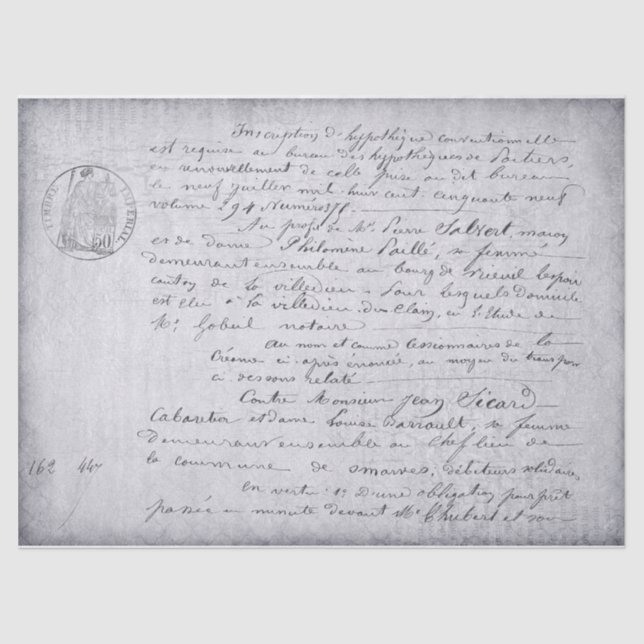 Inscription d'hypothèque conventionnelle
est requise au bureau des hypothèques de Poitiers,
en renouvellement de celle prise au dit bureau
le neuf juillet mil huit cent cinquante neuf
volume 294 Numéro
Au profit de Mr. Pierre Salvert, maçon
et de dame Philomène Paillé, sa femme
demeurant ensemble au bourg de Nieuil lespoir
canton de La villedieu - Pour lesquels Domicile
est élu à La villedieu du Clain, en l'Etude de
Me Gobeil notaire
TIMBRE IMPERIAL
50
au nom et comme cessionnaires de la
Créance ci-après énoncée, au moyen du transport
ci dessous relaté
Contre Monsieur Jean Sicard
Cabaretier et dame Louise Barrault, sa femme
demeurant ensemble au Chef lieu de
la commune de smarves; débiteurs solidaires
162 447
en vertu 1º D'une obligation pour prêt
passée en minute devant Me Chubert et son